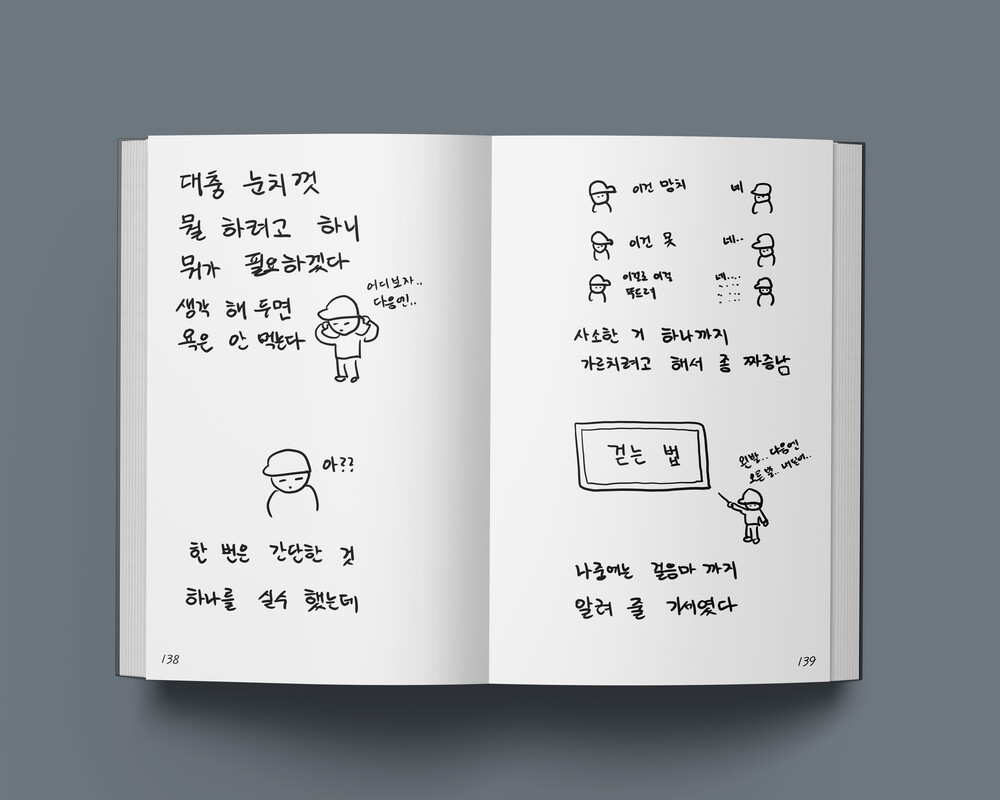 대충 눈치껏
뭘 하려고 하니
뭐가 필요하겠다
생각 해 두면
욕은 안 먹는다
어디보자..
다음엔..
아??
한 번은 간단한 것
하나를 실수 했는데
138
이건 망치
네
이건 못
네..
이걸로 이걸
뚝드려
네....
사소한 거 하나까지
가르치려고 해서 좀 짜증남
걷는 법
왼발.. 다음엔
오른발.. 내딛어..
나중에는 걸음마 까지
알려 줄 기세였다
139